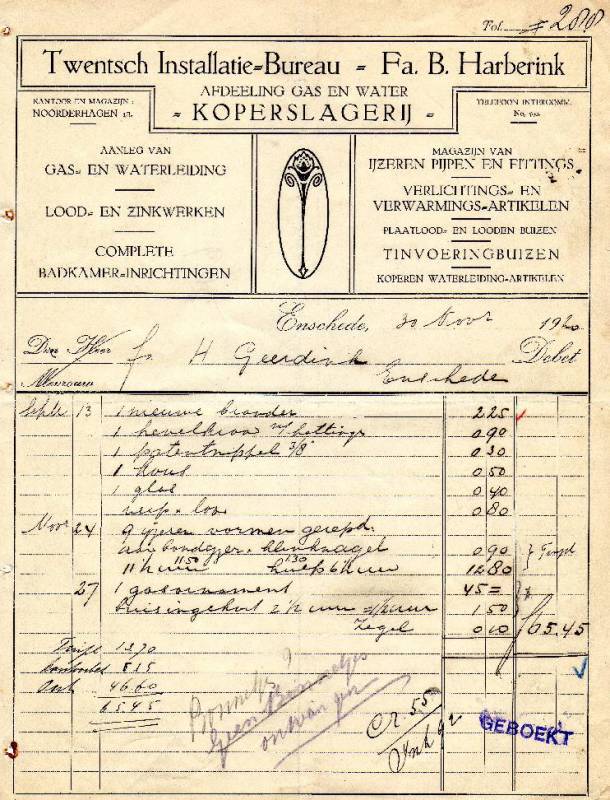 Fol. 288
Twentsch Installatie=Bureau - Fa. B. Harberink
AFDEELING GAS EN WATER
- KOPERSLAGERIJ -
KANTOOR EN MAGAZIJN:
NOORDERHAGEN
TELEFOON INTERCOMM.
No.
AANLEG VAN
GAS= EN WATERLEIDING
LOOD= EN ZINKWERKEN
COMPLETE
BADKAMER=INRICHTINGEN
MAGAZIJN VAN
IJZEREN PIJPEN EN FITTINGS
VERLICHTINGS= EN
VERWARMINGS=ARTIKELEN
PLAATLOOD= EN LOODEN BUIZEN
TINVOERINGBUIZEN
KOPEREN WATERLEIDING=ARTIKELEN
Enschede, 30 Nov 1920
Den Heer fa. H Geerdink Debet
Mevrouw Enschede
Sept 13 1 nieuwe brander 2 25
1 hevelkraan 0 90
1 patentnippel 3/8" 0 30
1 kous 0 50
1 glas 0 40
loon 0 80
Nov 24 9 ijzeren vormen
0 90
11½ uur 1150 6½ uur 130 12 80
27 1 gasornament 45 =
2½ uur 1.50
Zegel 0 10 65.45
13.70
5.15
46.60
65.45
Bonnetje?
Geen Bonnetjes
ontvangen
Cr. 55
Ink 92
GEBOEKT